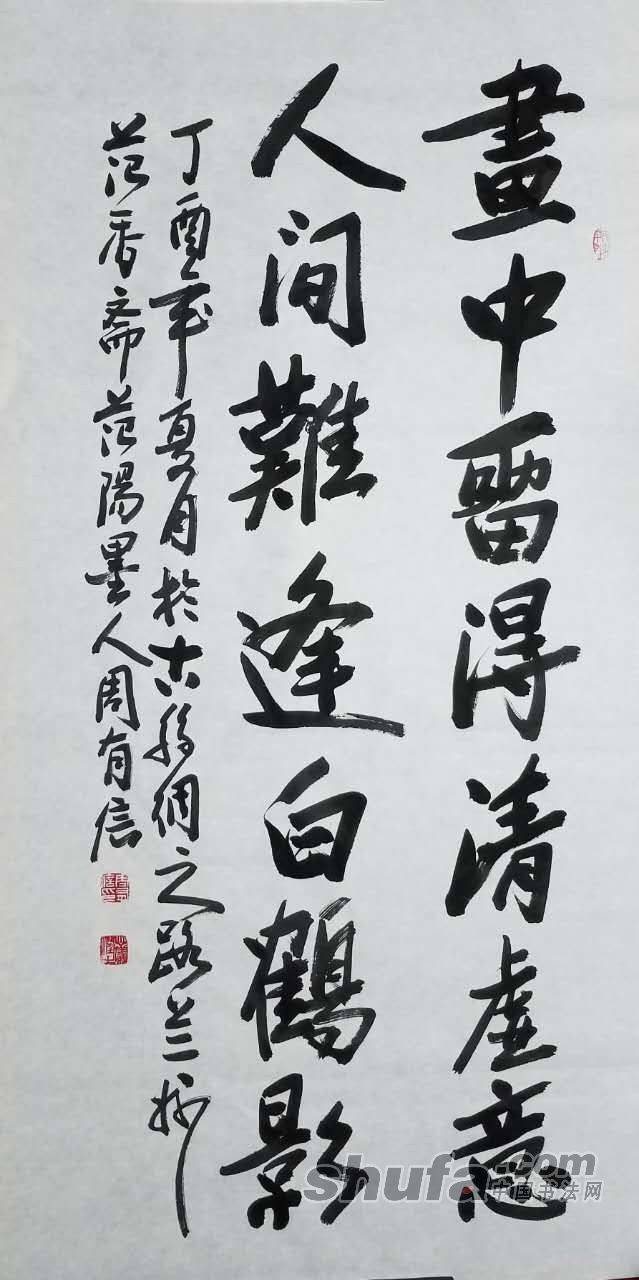 畫中留得清虛意
人间難逢白鶴影
丁酉年夏月於古絲綢之路兰州
范香斋范陽墨人周有信
shufa.com
中国书法网